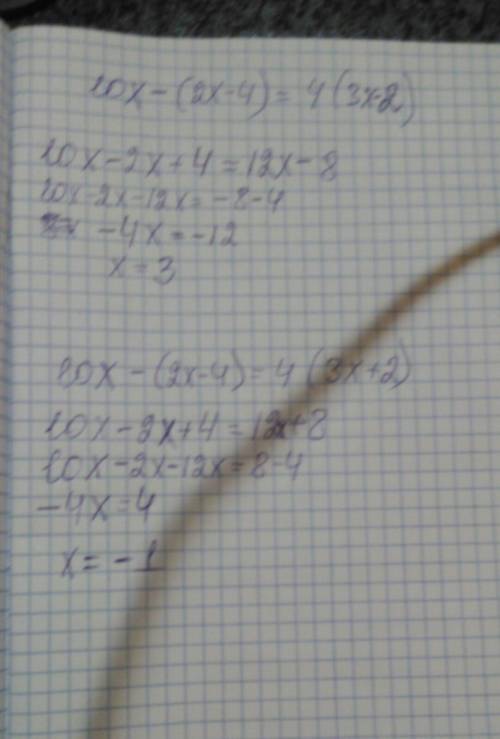 10x-(2x-4)=4(3x-2)
10x-2x+4=12x-8
10x-2x-12x=-8-4
-4x=-12
x=3
10x-(2x-4)=4(3x+2)
10x-2x+4=12x+8
10x-2x-12x=8-4
-4x=4
x=-1